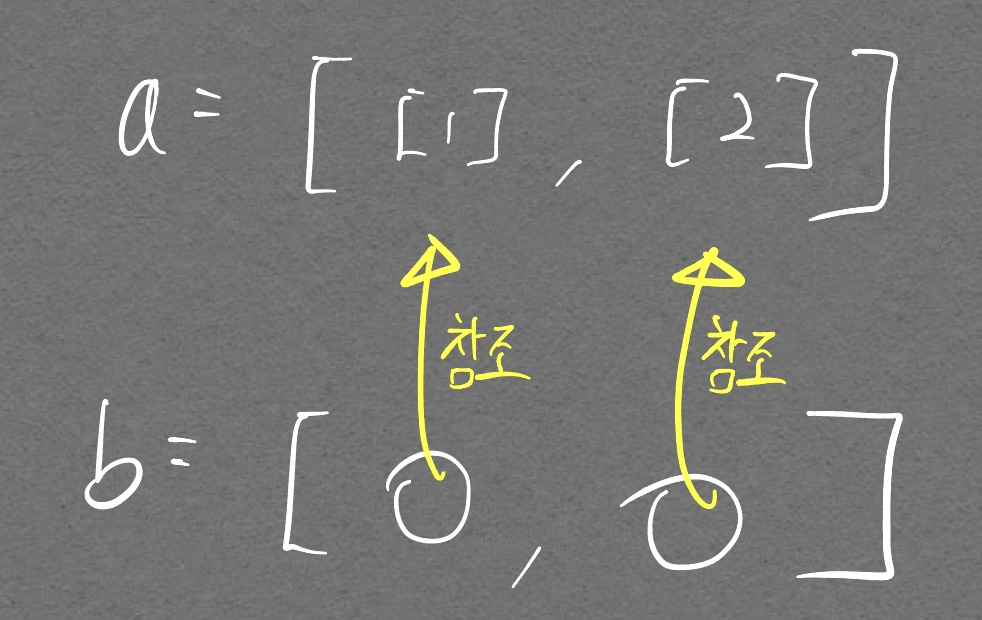 a = [ [1] , [2] ]
참조 참조
b = [ , ]